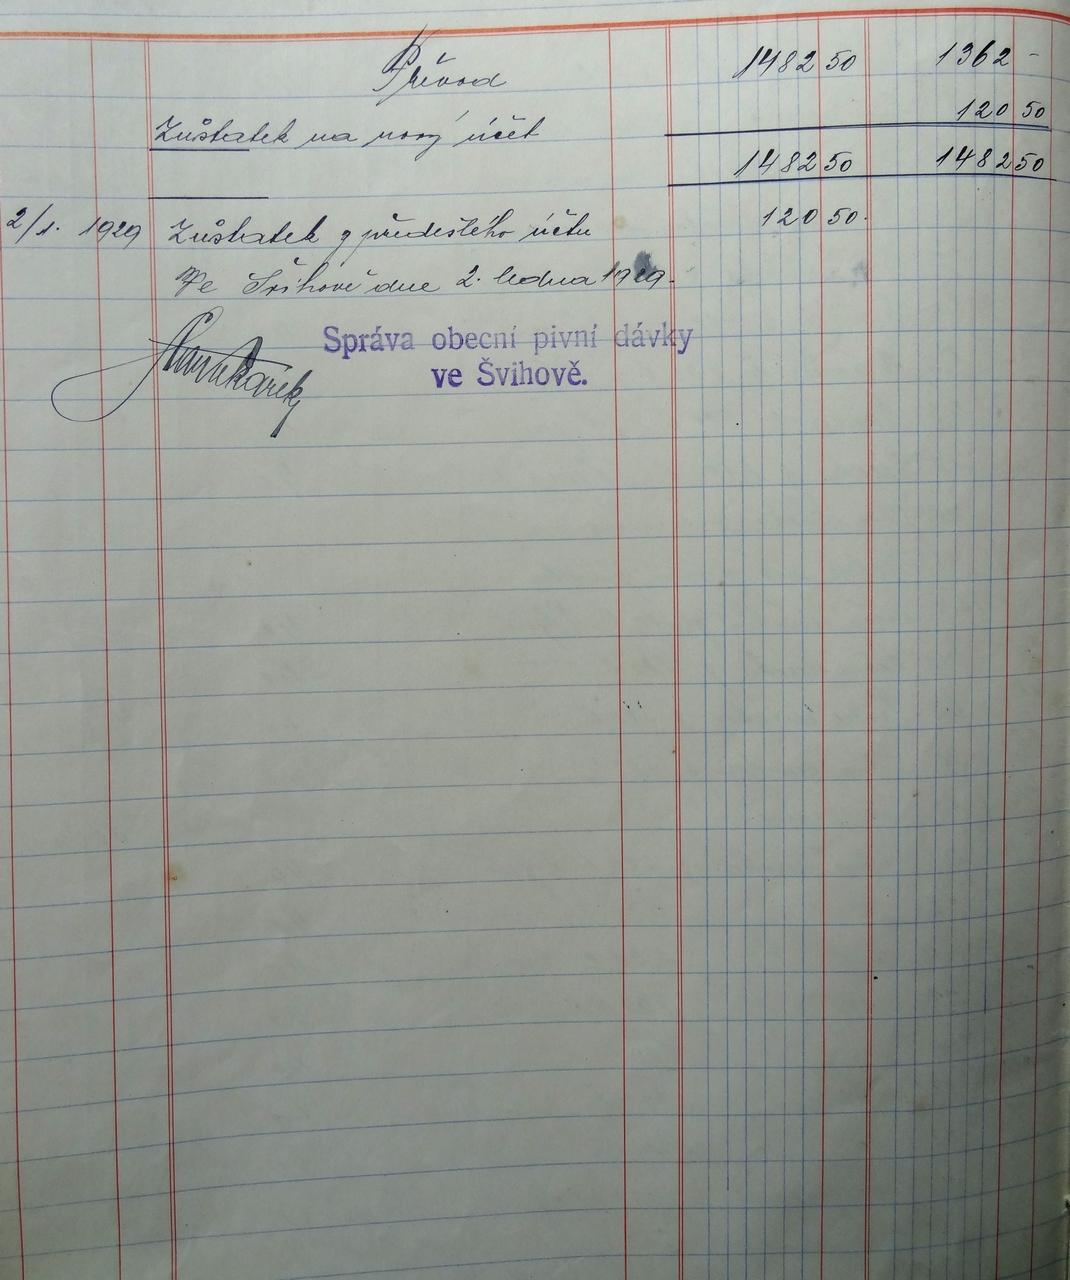 Převod 1482 50 1362 -
Zůstatek na nový účet 120 50
1482 50 1482 50
2/1. 1929 Zůstatek z předešlého účtu 120 50.
Ve Švihově dne 2. ledna 1929.
Správa obecní pivní dávky
ve Švihově.